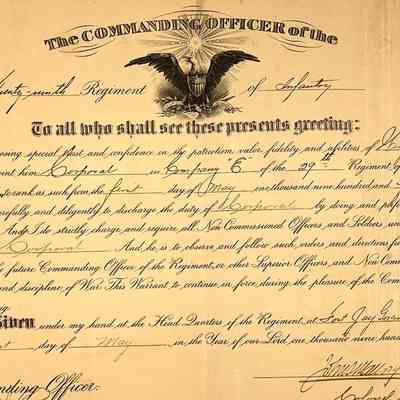 The COMMANDING OFFICER of the
Regiment of Infantry
To all who shall see these presents greeting:
special trust and confidence in the patriotism, valor, fidelity, and abilities of
him Corporal in Company "E" of the 29th Regiment
to rank as such from the first day of May one thousand nine hundred and
carefully and diligently to discharge the duty of Corporal by doing and
And I do strictly charge and require all Non-Commissioned Officers and Soldiers
Corporal And he is to observe and follow such orders and directions
future Commanding Officer of the Regiment, or other Superior Officers, and Non-Com
and discipline of War. This Warrant to continue in force during the pleasure of the Com
Given under my hand at the Head Quarters of the Regiment at Fort Jay Gove
day of May in the Year of our Lord, one thousand nine hund
nding Officer:
Colonel